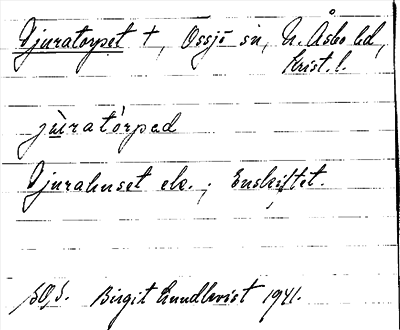 Djuratorpet +, Össjö sn, N. Åsbo hd,
Krist. l.
jùratòrpəd
Djurahuset el. ; Enskiftet.
Birgit Lundkvist 1941.